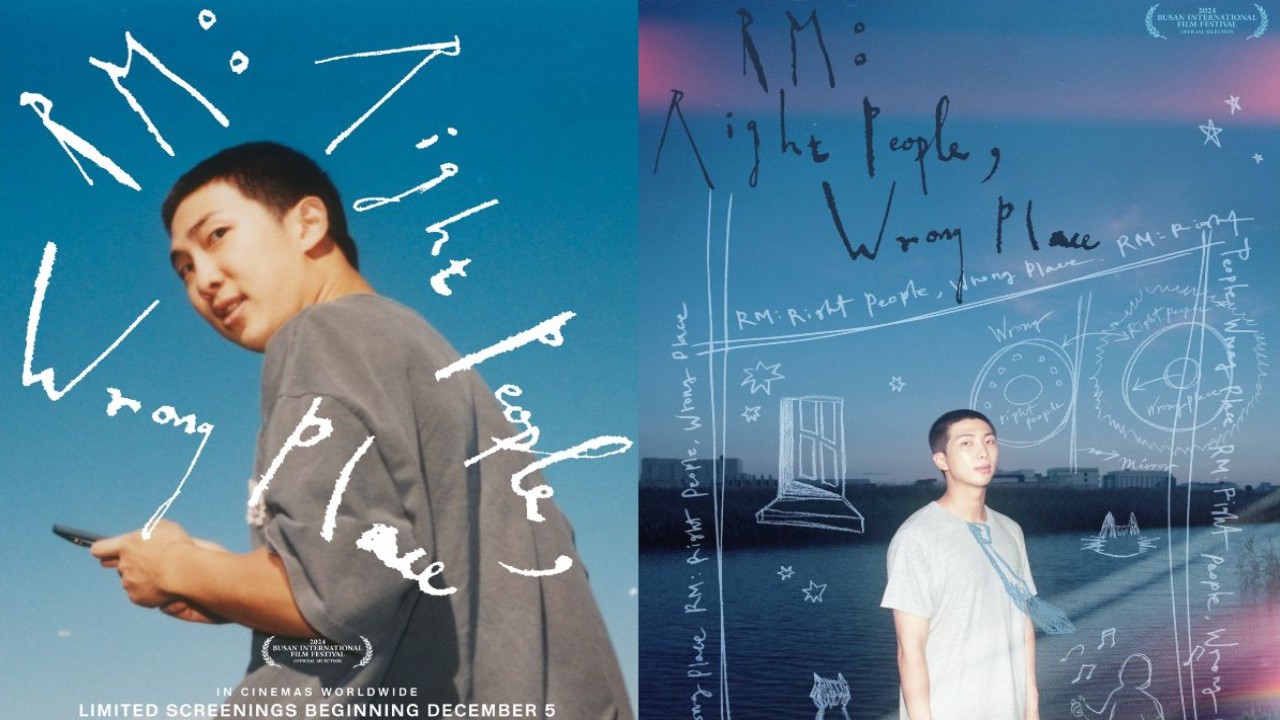 RM:
Right
People,
Wrong
Place
2024
BUSAN INTERNATIONAL
FILM FESTIVAL
OFFICIAL SELECTION
IN CINEMAS WORLDWIDE
LIMITED SCREENINGS BEGINNING DECEMBER 5
2024
BUSAN INTERNATIONAL
FILM FESTIVAL
OFFICIAL SELECTION
RM:
Right People,
Wrong Place
RM: Right People, Wrong Place. RM: Right
People, Wrong Place, RM: Right People, Wrong
ong Place RM: Right People, Wrong Place
Wrong
right
people
Right People
Wrong Place
Mirror